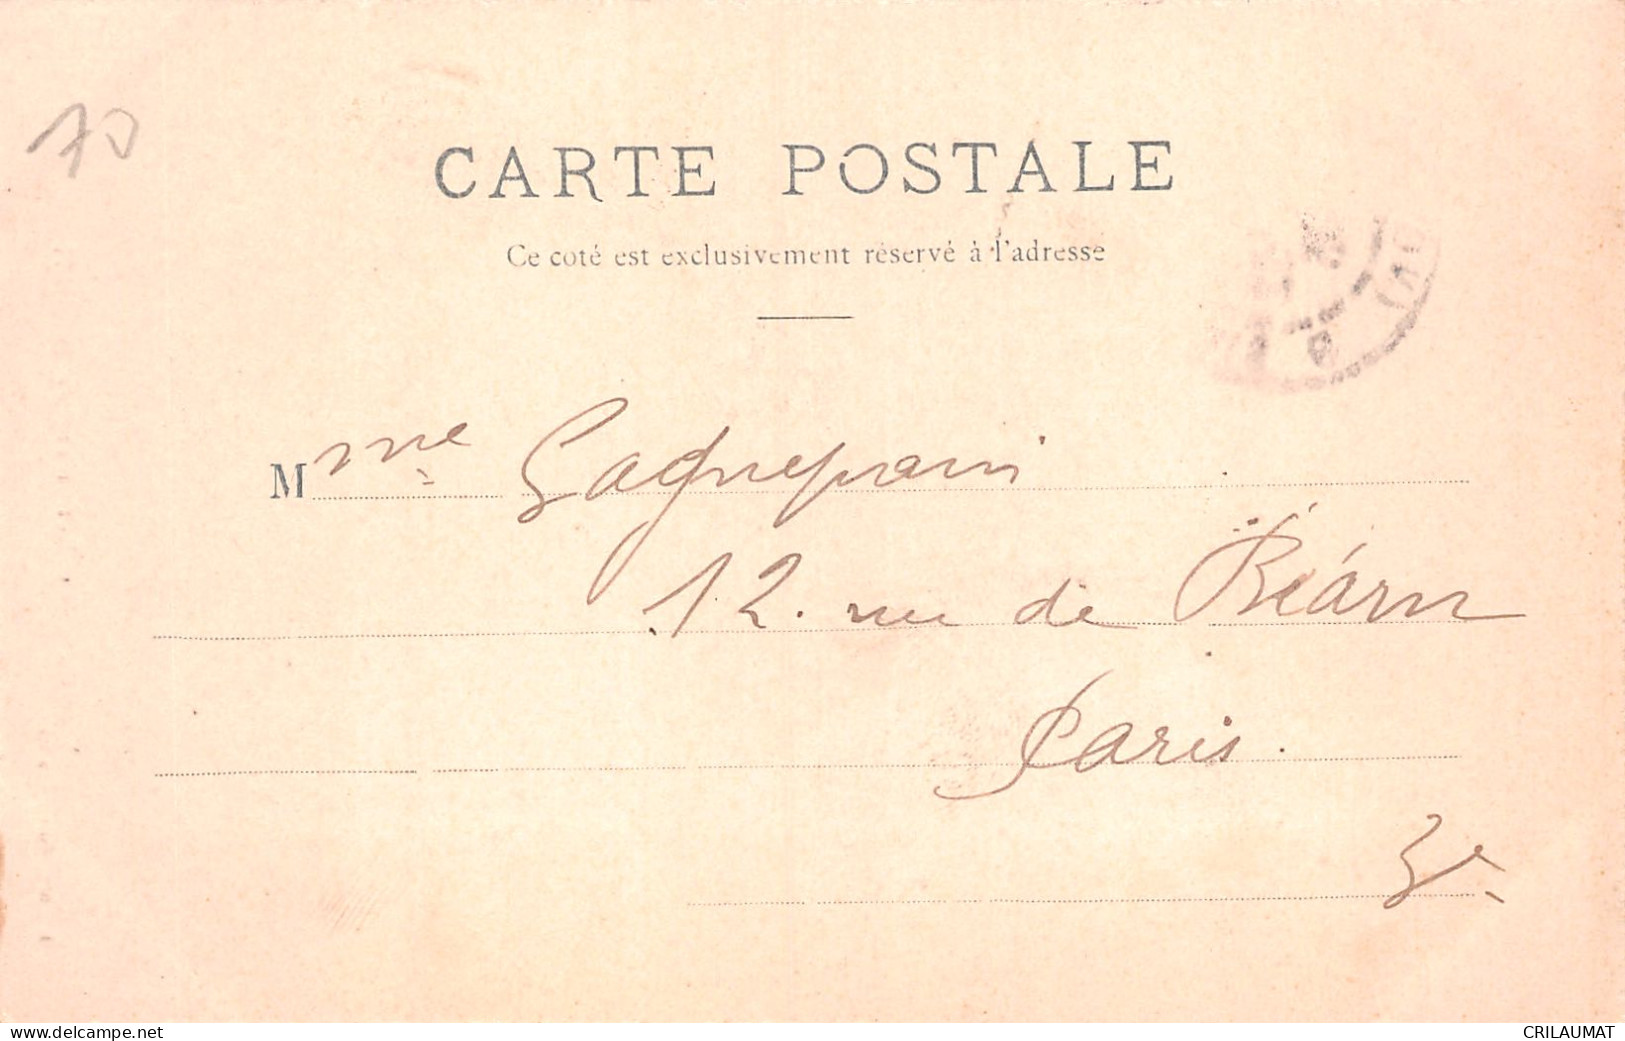 70
CARTE POSTALE
Ce coté est exclusivement réservé à l'adresse
Mme Gagnepain
12. rue de Béarn
Paris.
3e
www.delcampe.net
CRILAUMAT